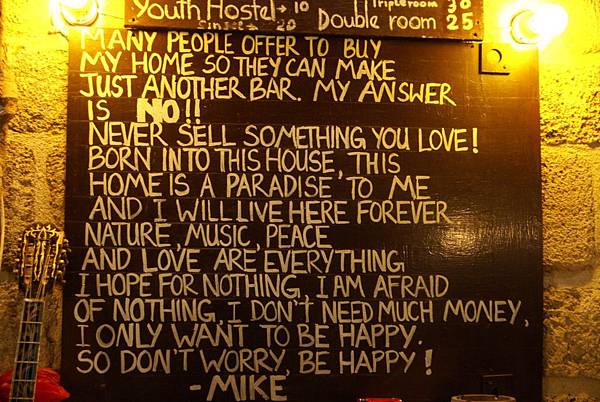 Youth Hostel → 10 Triple room 30
Single → 20 Double room 25
MANY PEOPLE OFFER TO BUY
MY HOME SO THEY CAN MAKE
JUST ANOTHER BAR. MY ANSWER
IS NO!!
NEVER SELL SOMETHING YOU LOVE!
BORN INTO THIS HOUSE, THIS
HOME IS A PARADISE TO ME
AND I WILL LIVE HERE FOREVER
NATURE, MUSIC, PEACE
AND LOVE ARE EVERYTHING
I HOPE FOR NOTHING, I AM AFRAID
OF NOTHING, I DON'T NEED MUCH MONEY,
I ONLY WANT TO BE HAPPY.
SO DON'T WORRY, BE HAPPY!
- MIKE